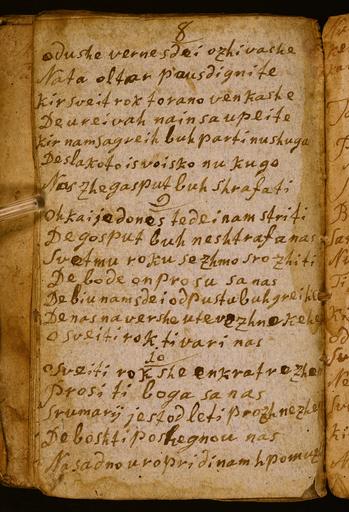 8
odushe vernesdei ozhivashe
Nata oltar pausdignite
kir sveit rok torano venkashe
Deureivah nainsaupeite
kir namsagreih buh partinushuga
Deslakoto isvoisko nu kugo
Nas zhegasput buh shrafati
9
Oh kai je donos tedei nam striti
De gosput buh neshtrafa nas
Svetmu roku se zhmo srozhiti
De bode on prosu sa nas
De biu nam sdei odpustu buh greihe
De nas na vershe
O sveiti rok ti vari nas
10
O sveiti rok she enkrat
Prosi ti boga sa nas
srumarij jest od leti
De boshti poshegnou nas
Na sadno uro pridi nam h pomuzh